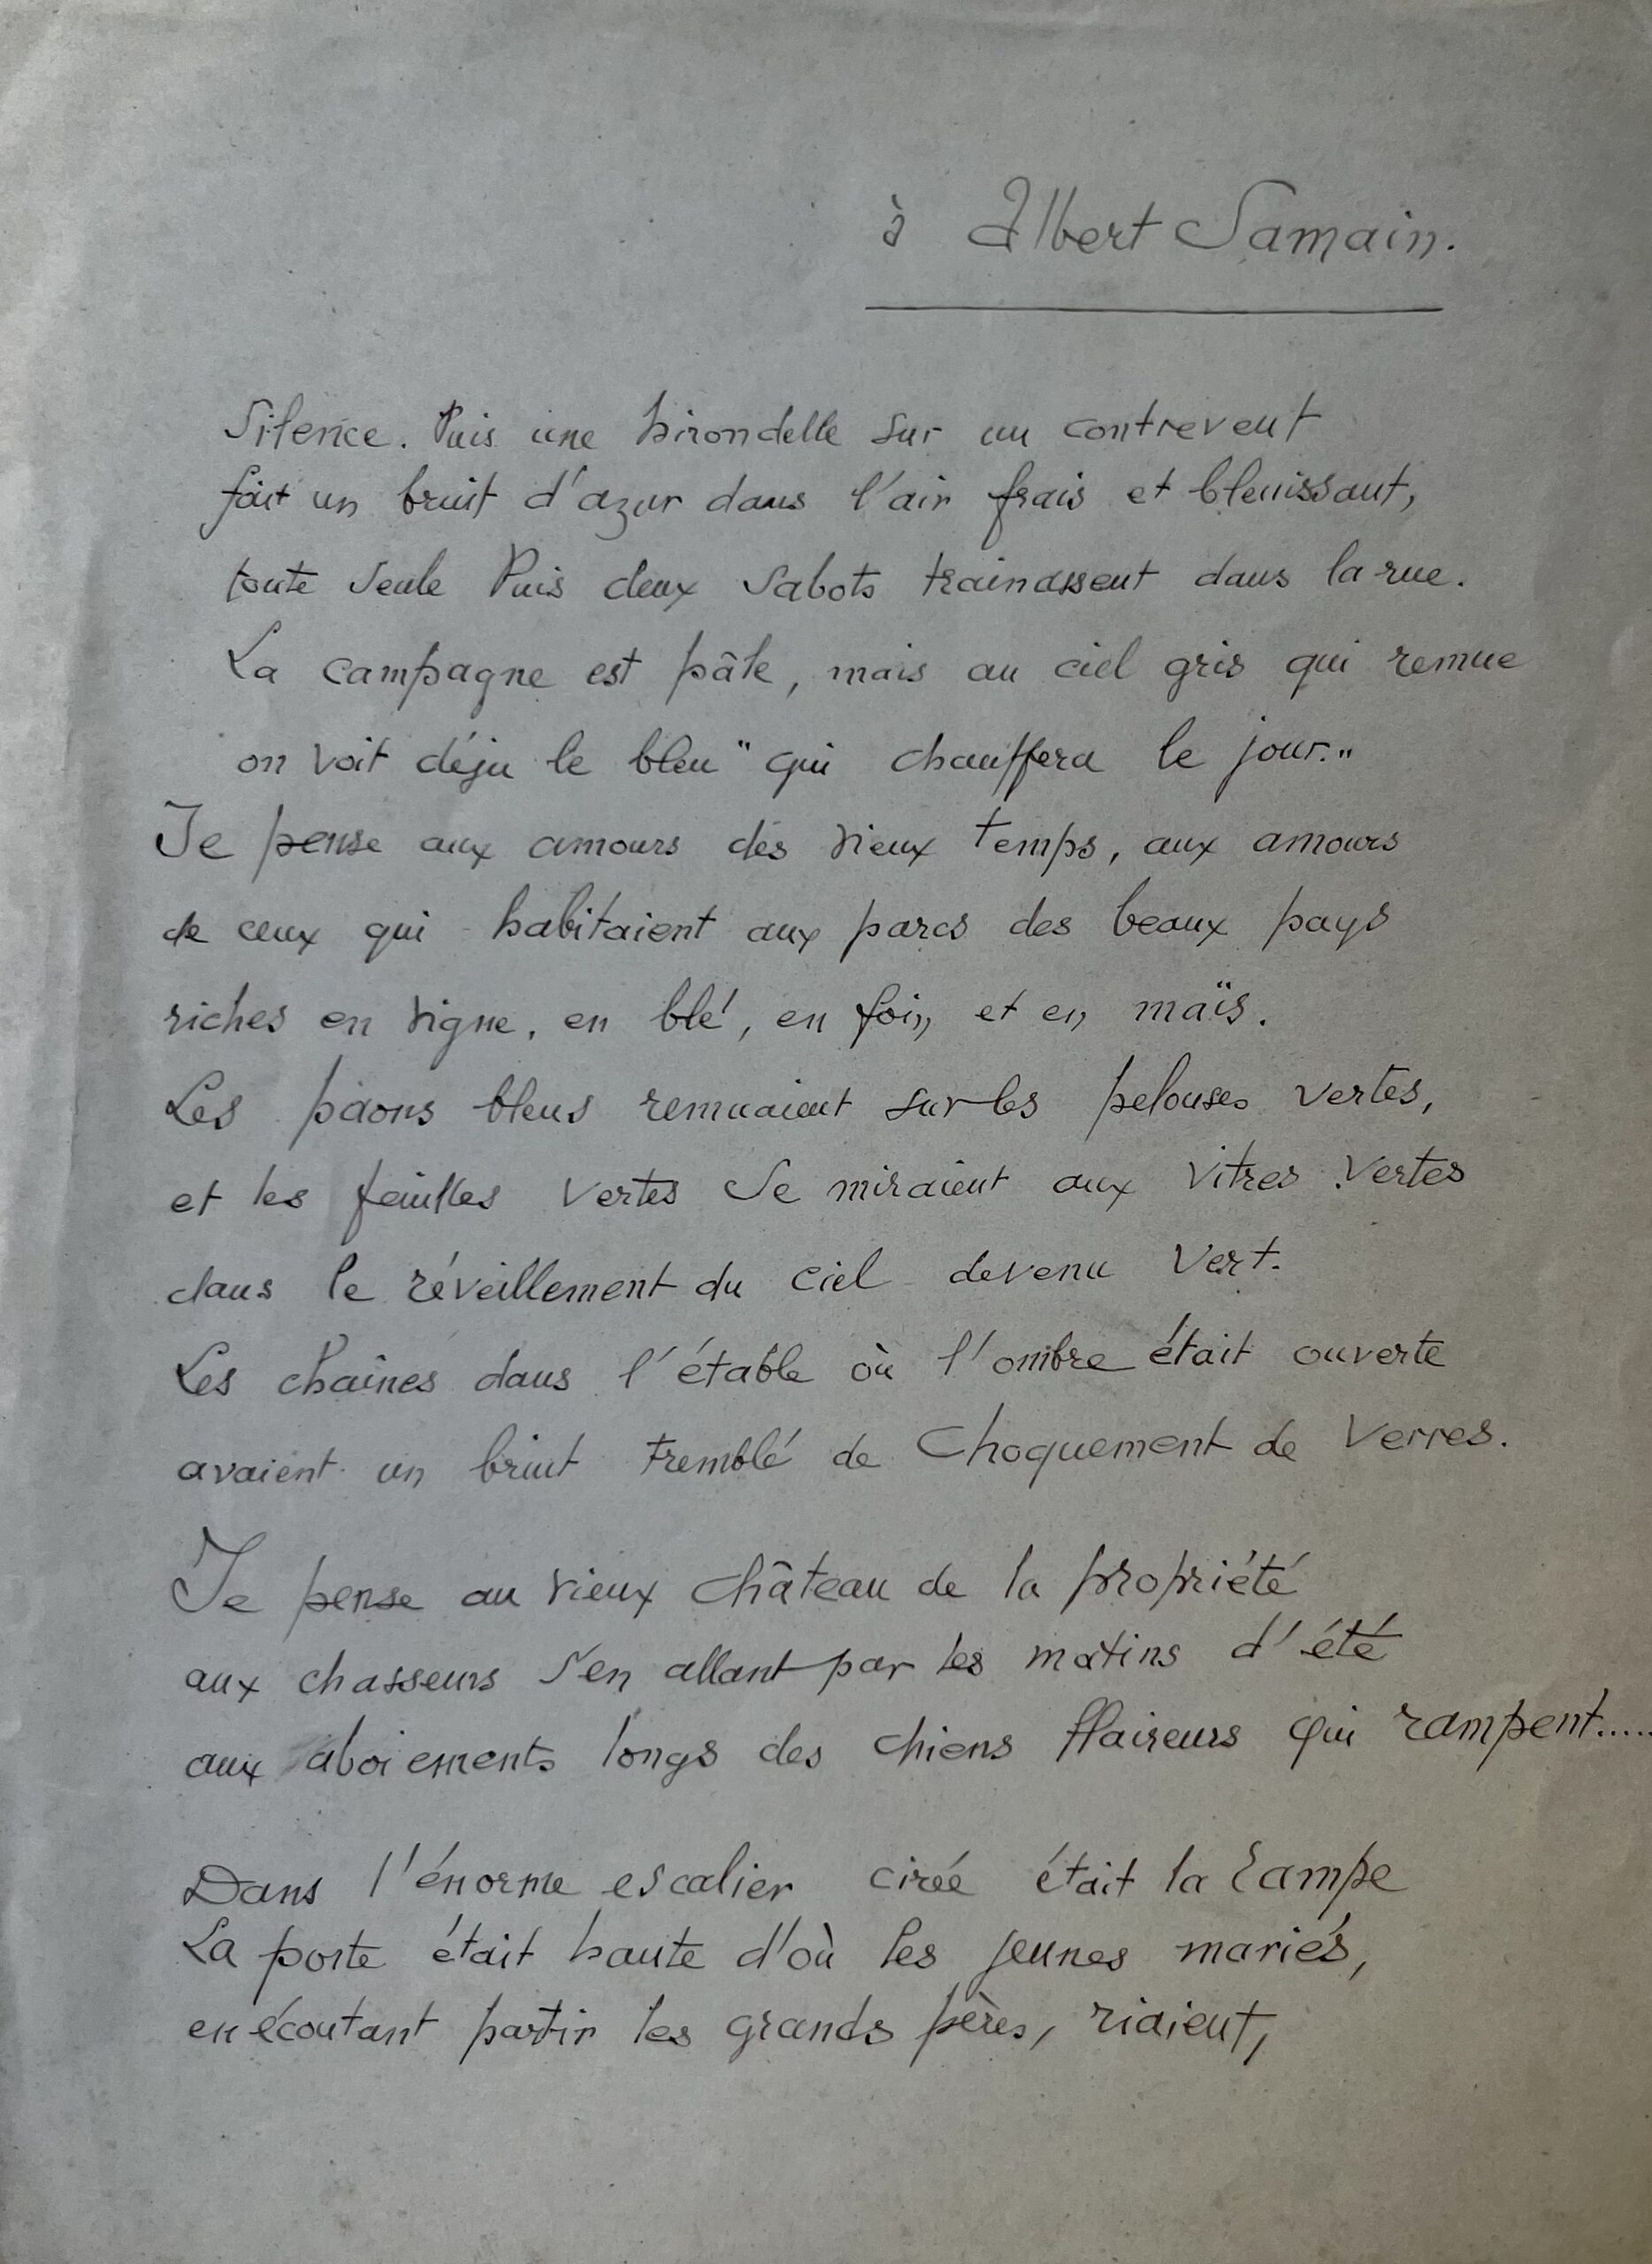 à Albert Samain.
Silence. Puis une hirondelle sur un contrevent
fait un bruit d'azur dans l'air frais et bleuissant,
toute seule Puis deux sabots traînassent dans la rue.
La campagne est pâle, mais au ciel gris qui remue
on voit déjà le bleu "qui chauffera le jour."
Je pense aux amours des vieux temps, aux amours
de ceux qui habitaient aux parcs des beaux pays
riches en vigne, en blé, en foin, et en maïs.
Les paons bleus remuaient sur les pelouses vertes,
et les feuilles vertes se miraient aux vitres vertes
dans le réveillement du ciel devenu vert.
Les chaînes dans l'étable où l'ombre était ouverte
avaient un bruit tremblé de choquement de verres.
Je pense au vieux château de la propriété
aux chasseurs s'en allant par les matins d'été
aux aboiements longs des chiens flaireurs qui rampent.....
Dans l'énorme escalier cirée était la rampe
La porte était haute d'où les jeunes mariés,
en écoutant partir les grands pères, riaient,